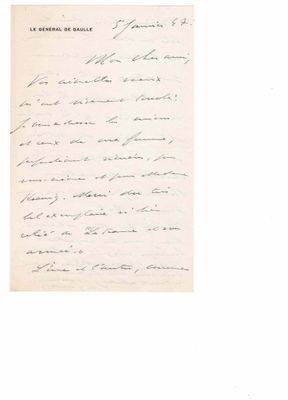 LE GÉNÉRAL DE GAULLE
5 Janvier 47.
Mon cher ami,
Vos aimables vœux
m'ont vivement touché.
Je vous adresse les miens
et ceux de ma femme,
profondément sincères, pour
vous-même et pour Madame
Kœnig. Merci du très
bel exemplaire si bien
relié de
armée.
L'une et l'autre, comme